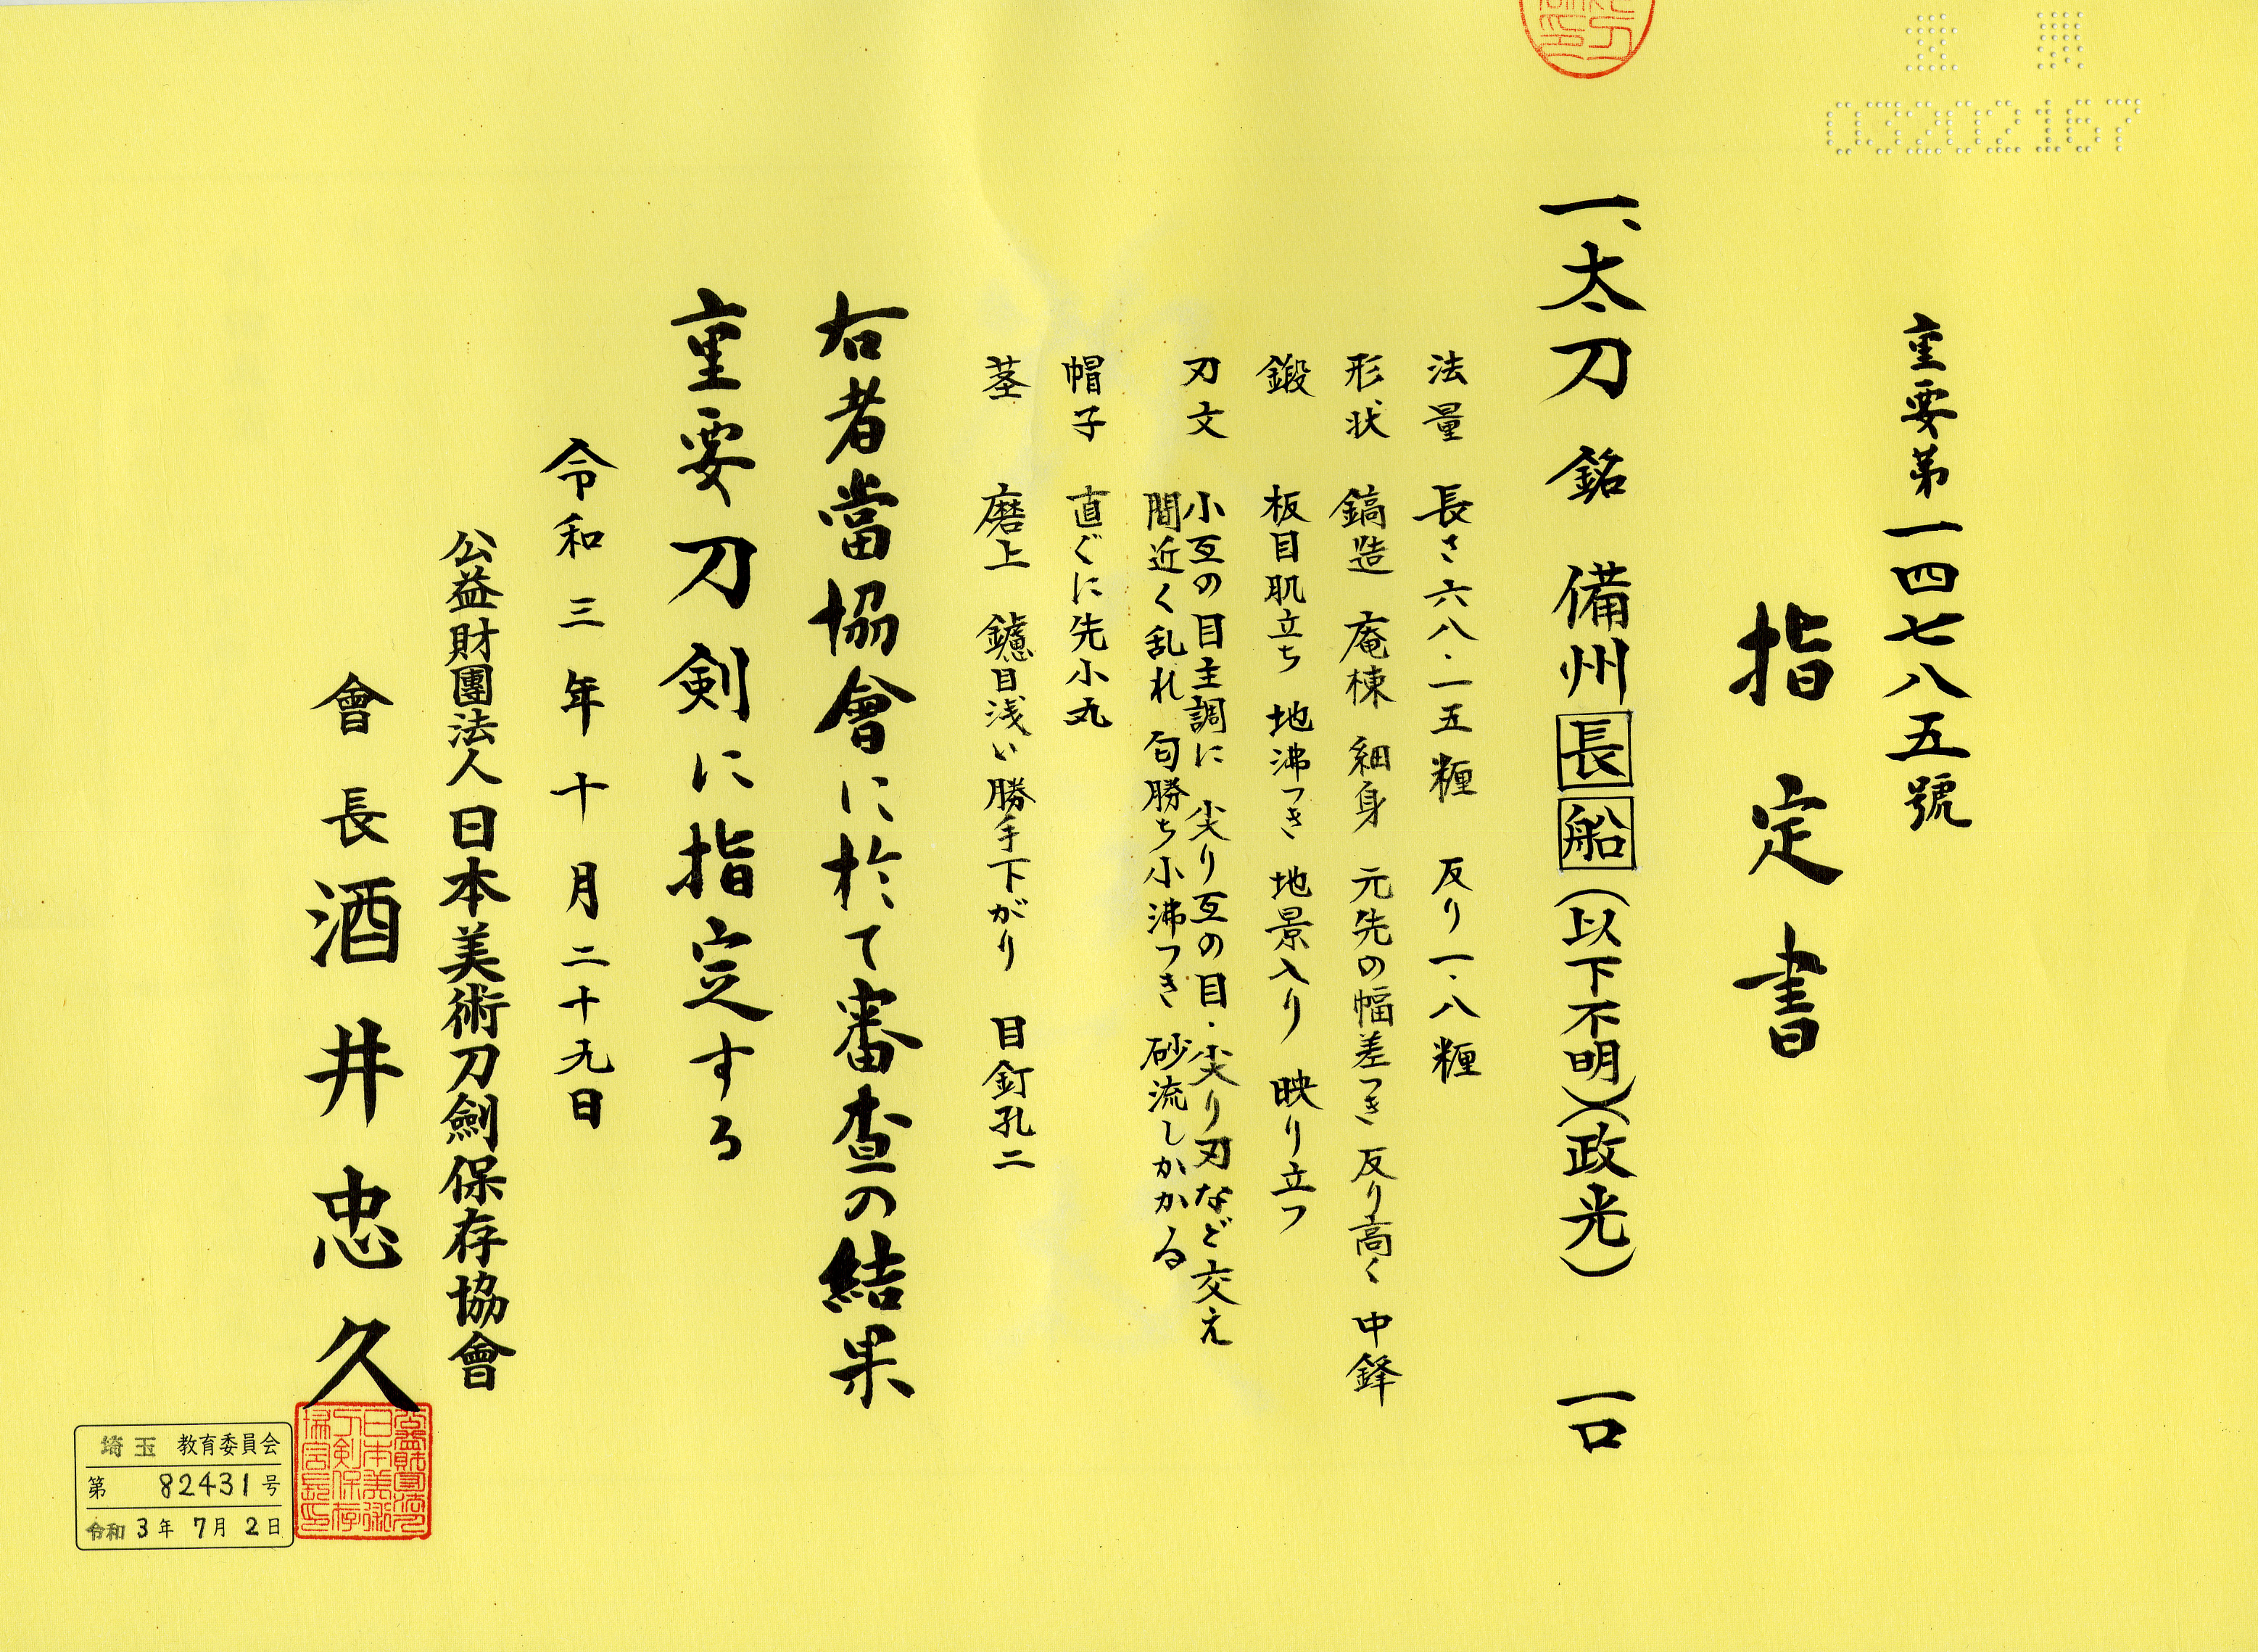 03202167
重要第一四七八五號
指定書
一、太刀 銘 備州長船(以下不明)(政光) 一口
法量 長さ六八・一五糎 反り一・八糎
形状 鎬造 庵棟 細身 元先の幅差つき 反り高く 中鋒
鍛 板目肌立ち 地沸つき 地景入り 映り立つ
刃文 小互の目主調に 尖り互の目・尖り刃など交え
間近く乱れ 匂勝ち小沸つき 砂流しかかる
帽子 直ぐに先小丸
茎 磨上 鑢目浅い勝手下がり 目釘孔二
右者當協會に於て審査の結果
重要刀剣に指定する
令和三年十月二十九日
公益財團法人日本美術刀劍保存協會
會長 酒井忠久
埼玉 教育委員会
第 82431号
令和3年7月2日